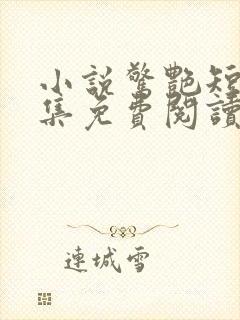 小說驚艷短
集免費閱讀
連城雪